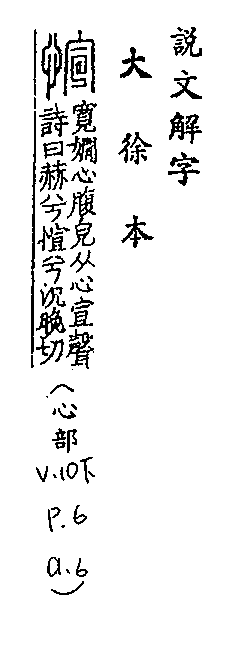 説文解字
大徐本
愃
寬嫺心腹皃从心宣聲
詩曰赫兮愃兮况晚切
(心部
V.10下
P.6
a.6)